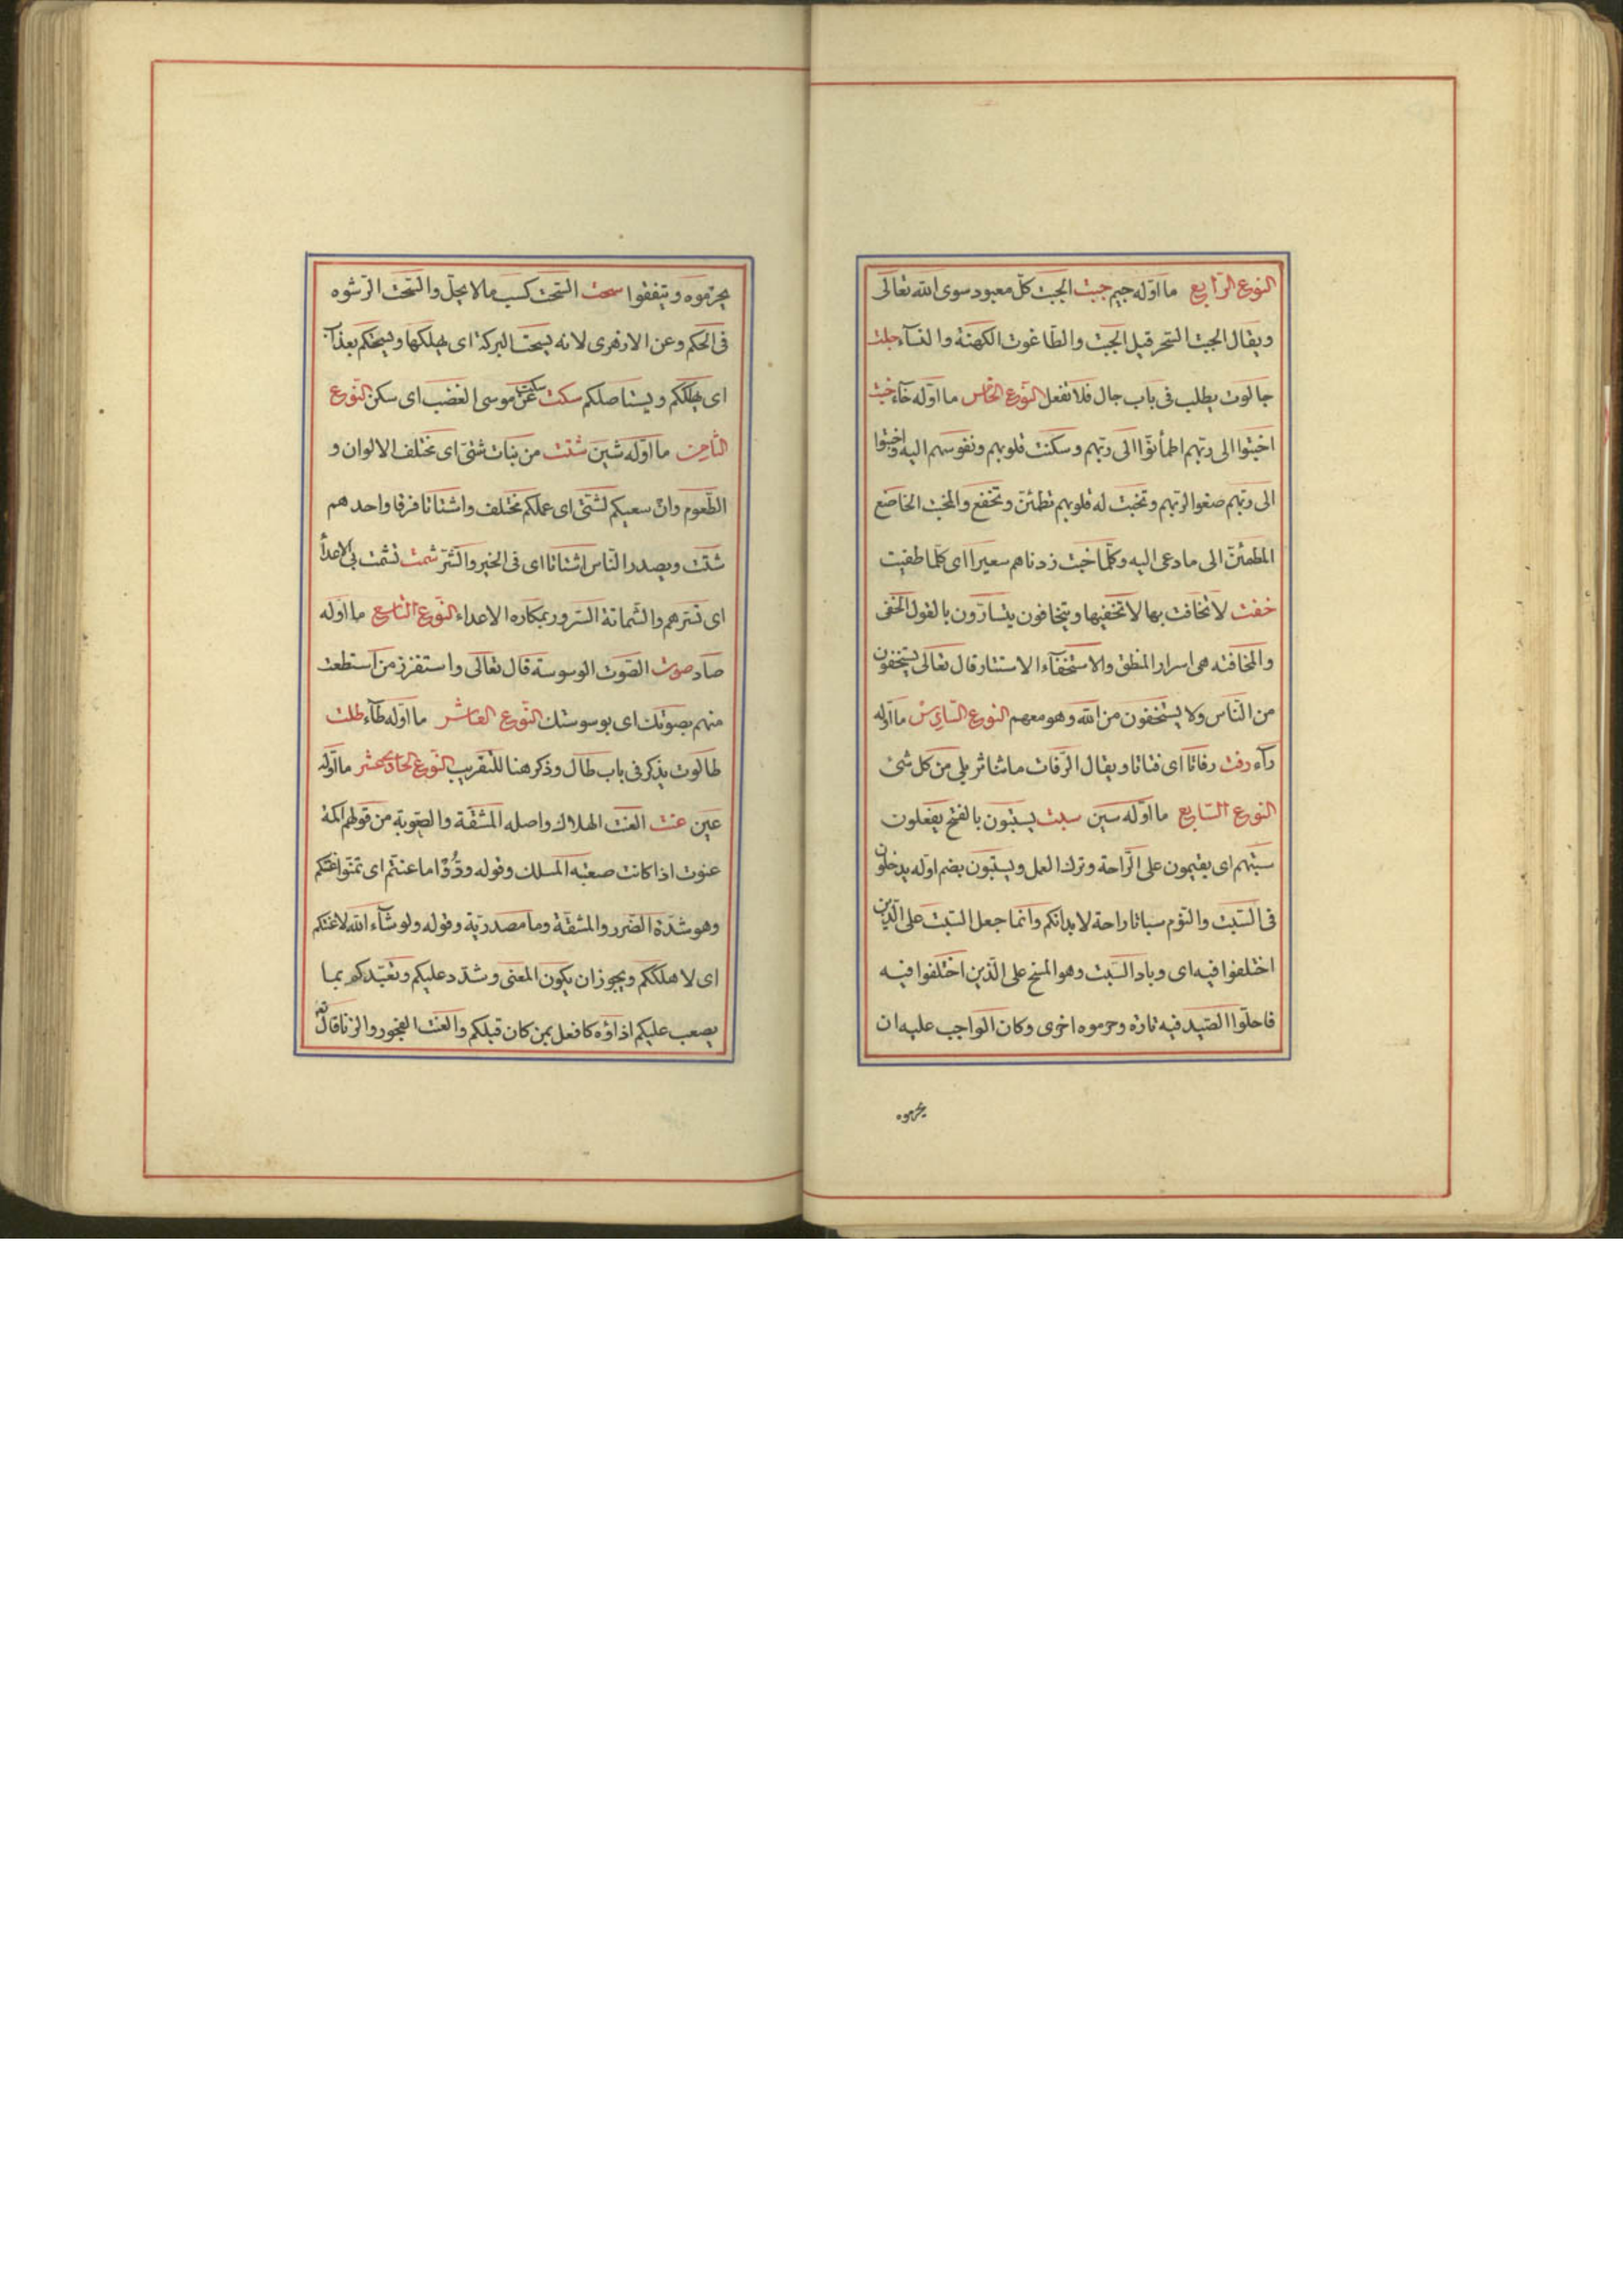 النوع الرّابع ما اوّله جيم جبت الجبت كلّ معبود سوى الله تعالى
ويقال الجبت السّحر قيل الجبت والطّاغوت الكهنة والتّاء جلت
جالوت يطلب فى باب جال فلا تفعل النّوع الخامس ما اوّله خآء خبت
اخبتوا الى ربّهم اطمأنوّا الى ربّهم وسكنت قلوبهم ونفوسهم اليه واخبتوا
الى ربّهم صغوا لربّهم وتخبت له قلوبهم تطمئنّ وتخفع والمخبت الخاضع
المطمئنّ الى ما دعى اليه وكلّما خبت زدناهم سعيرا اى كلّما طفيت
خفت لا تخافت بها لا تخفيها ويتخافون يتسارّون بالقول الخفى
والمخافته هى اسرار المنطق والاستخفآء الاستتار قال تعالى يستخفون
من النّاس ولا يستخفون من الله وهو معهم النوع السّادس ما اوّله
رآء رفت رفاتا اى فتاتا ويقال الرّفات ما تناثر بلى من كل شئ
النوع السّابع ما اوّله سين سبت يسبتون بالفتح يفعلون
سبتهم اى يقيمون على الرّاحة وترك العمل ويسبتون بضم اوّله يدخلون
فى السّبت والنّوم سباتا راحة لابدانكم وانّما جعل السّبت على الّذين
اختلفوا فيه اى وباد السّبت وهو المسخ على الّذين اختلفوا فيه
فاحلّوا الصّيد فيه تارة وحرموه اخرى وكان الواجب عليه ان
يحرموه
يحرّموه ويتفقوا سحت السّحت كسب ما لا يحلّ والسّحت الرّشوه
فى الحكم وعن الازهرى لانه يسحت البركة اى يهلكها ويسحتكم بعذاب
اى يهلككم ويستاصلكم سكت سكت عن موسى الغضب اى سكن النّوع
الثّامن ما اوّله شين شتت من نبات شتى اى مختلف الالوان و
الطّعوم وانّ سعيكم لشتى اى عملكم مختلف واشتاتا فرقا واحدهم
شتّت ويصدر النّاس اشتاتا اى فى الخير والشّرّ شمت تشمت بى الاعدآ
اى تسرّهم والشّماتة السّرور بمكاره الاعداء النّوع التّاسع ما اوّله
صاد صوت الصّوت الوسوسة قال تعالى واستفزز من استطعت
منهم بصوتك اى بوسوستك النّوع العاشر ما اوّله طآء طلت
طالوت يذكر فى باب طال وذكر هنا للتّقريب النّوع الحادى عشر ما اوّله
عين عنت العنت الهلاك واصله المشقّة والصّعوبة من قولهم اكمة
عنوت اذا كانت صعبة المسلك وقوله ودّوا ما عنتّم اى تمنّوا عنتكم
وهو شدّة الضّرر والمشقّة وما مصدريّة وقوله ولو شآء الله لاعنتكم
اى لاهلككم ويجوز ان يكون المعنى وشدّد عليكم وتعبّدكم بما
يصعب عليكم اذاؤه كما فعل بمن كان قبلكم والعنت الفجور والزّنا قال تع